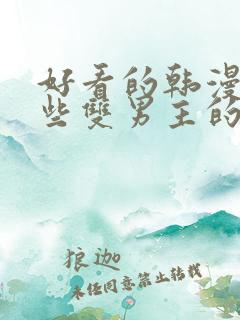 好看的韩漫
些雙男主的
狼迦
未经同意禁止转载